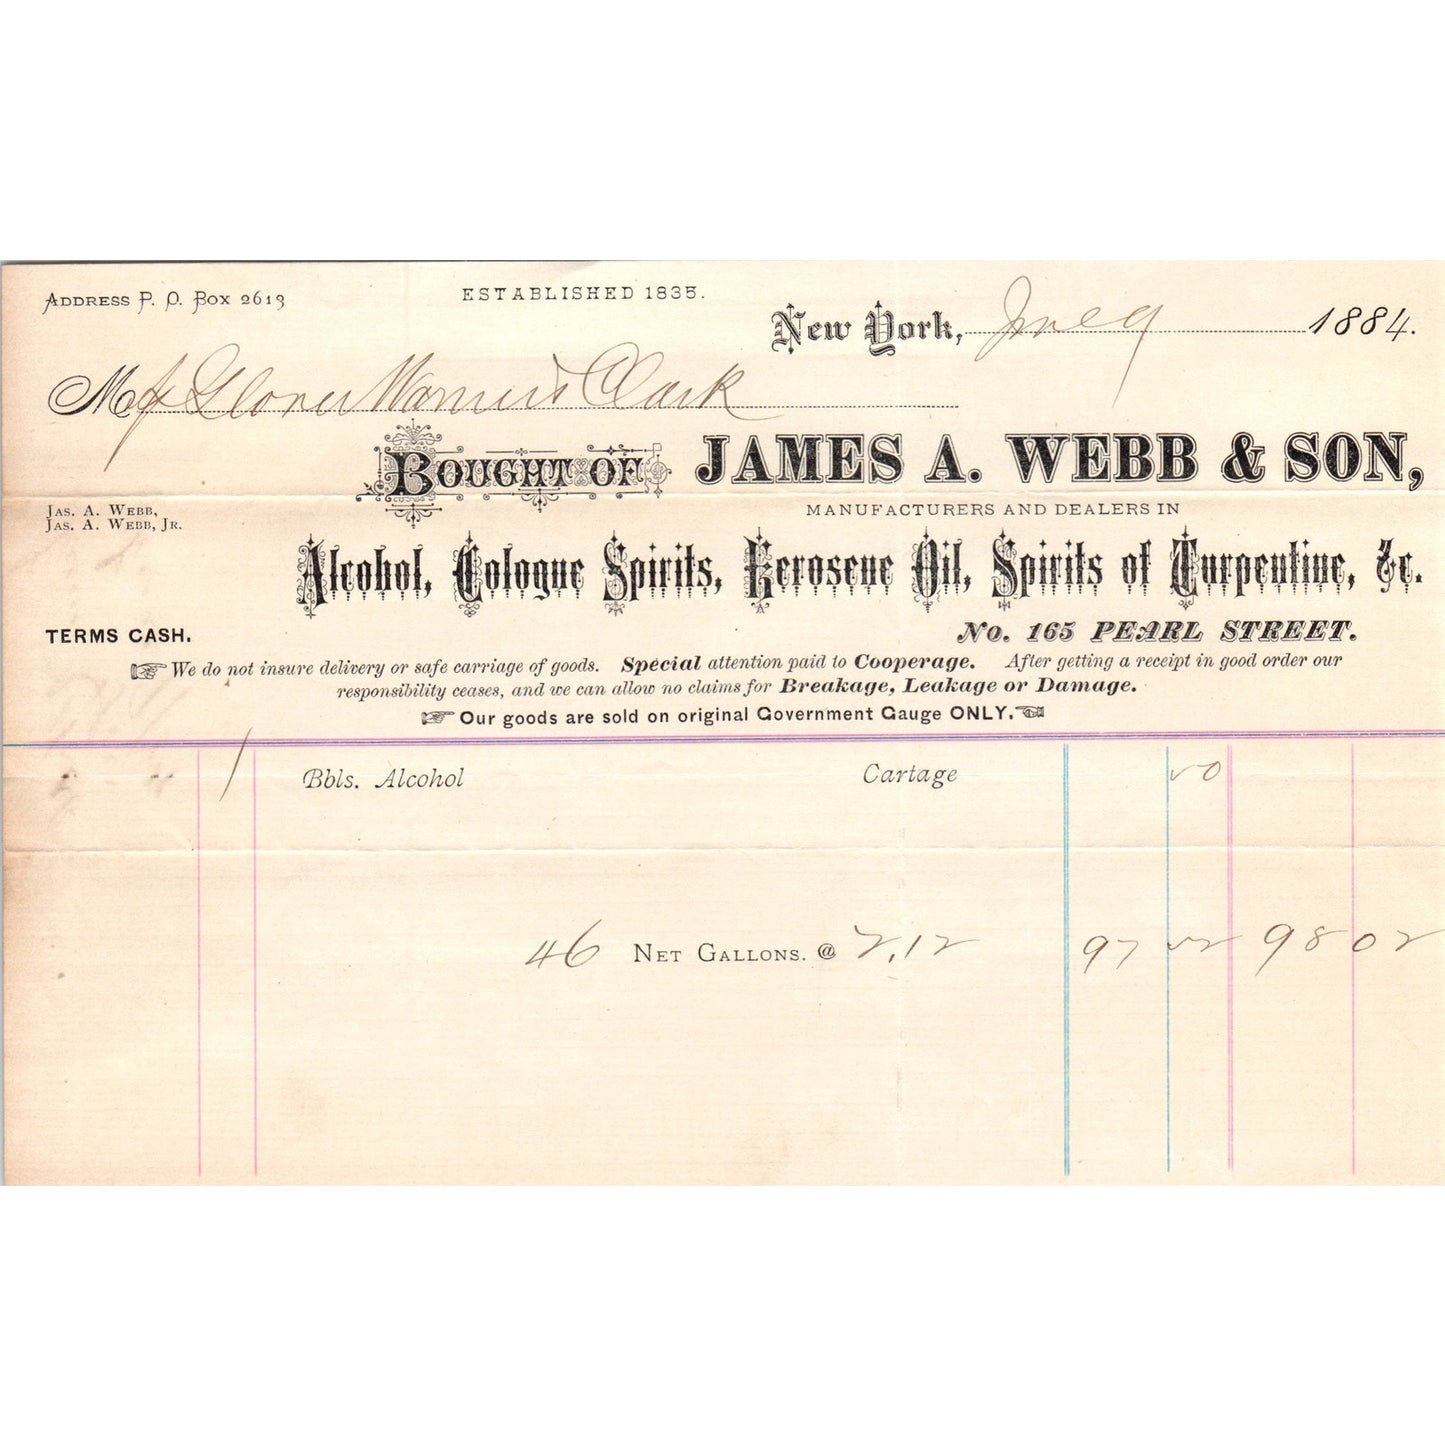 ADDRESS P. O. BOX 2613
ESTABLISHED 1835.
New York, June 9 1884.
M Glover Warner & Clark
BOUGHT OF JAMES A. WEBB & SON,
JAS. A. WEBB,
JAS. A. WEBB, JR.
MANUFACTURERS AND DEALERS IN
Alcohol, Cologne Spirits, Kerosene Oil, Spirits of Turpentine, &c.
TERMS CASH.
No. 165 PEARL STREET.
We do not insure delivery or safe carriage of goods. Special attention paid to Cooperage. After getting a receipt in good order our
responsibility ceases, and we can allow no claims for Breakage, Leakage or Damage.
Our goods are sold on original Government Gauge ONLY.
1 Bbls. Alcohol Cartage 50
46 NET GALLONS. @ 2.12 97 52 98 02